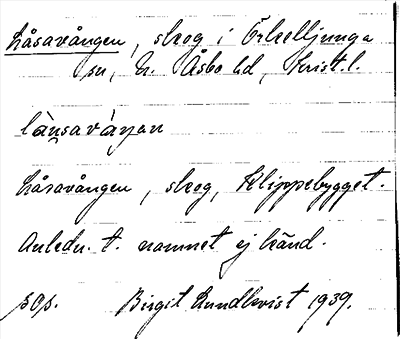 Låsavången, skog i Örkelljunga
sn, N. Åsbo hd, Krist. l.
låsavåŋən
Låsavången, skog, Klippebygget.
Anledn. t. namnet ej känd.
pop. Birgit Lundkvist 1939.